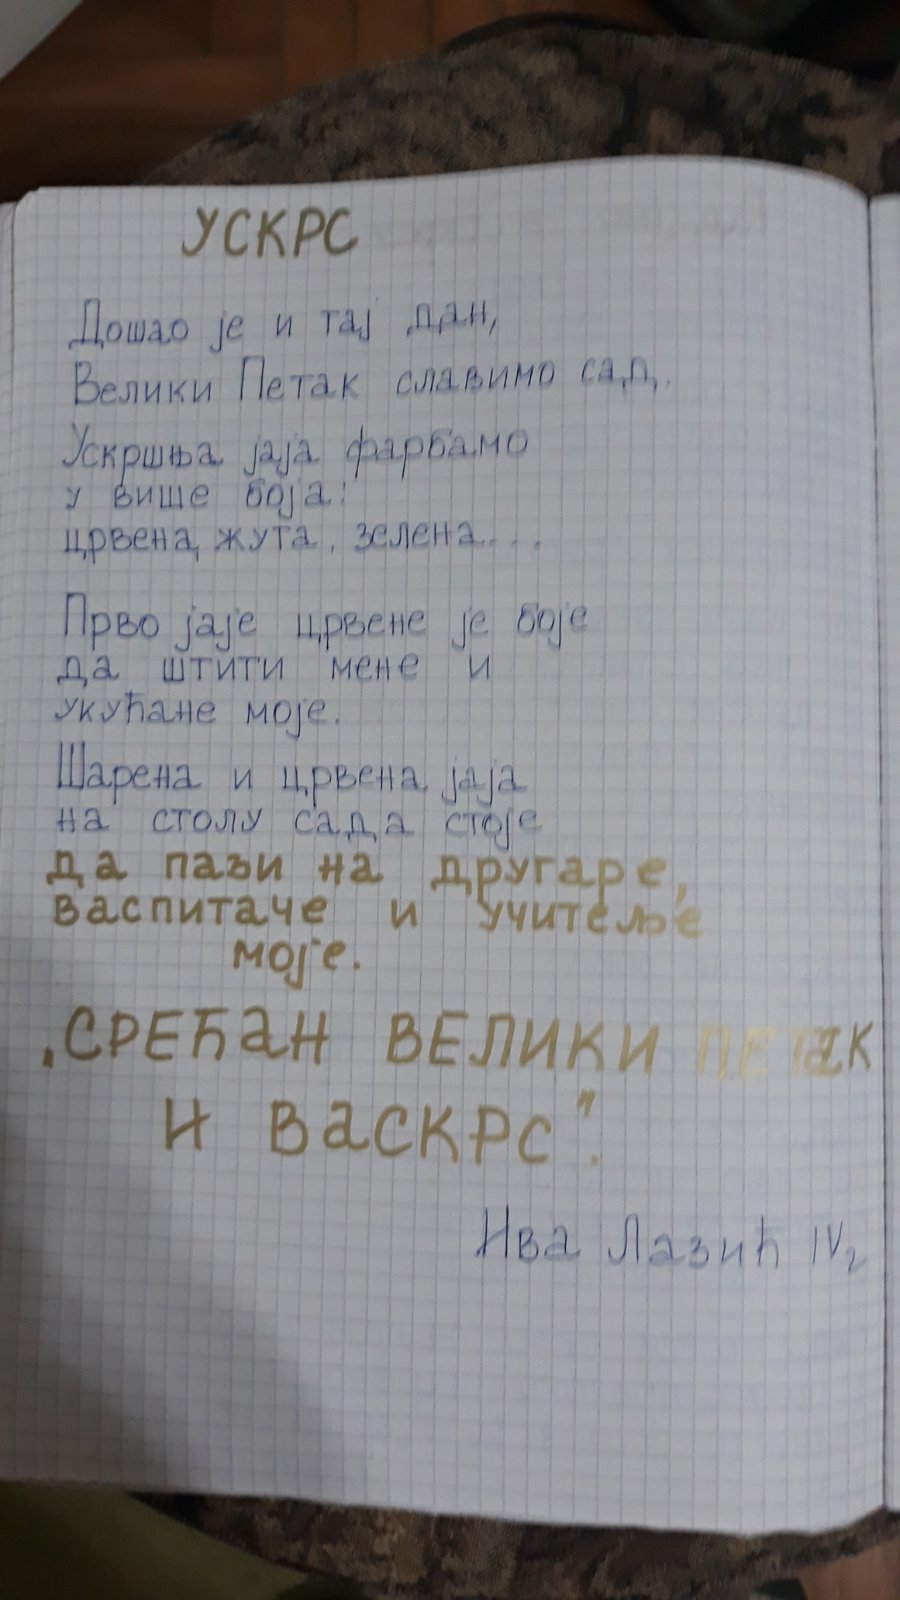 УСКРС
Дошао је и тај дан,
Велики Петак славимо сад.
Ускршња јаја фарбамо
у више боја:
црвена, жута, зелена...
Прво јаје црвене је боје
да штити мене и
укућане моје.
Шарена и црвена јаја
на столу сада стоје
да пази на другаре,
васпитаче и учитеље
моје.
„СРЕЋАН ВЕЛИКИ ПЕТАК
И ВАСКРС".
Ива Лазић IV2